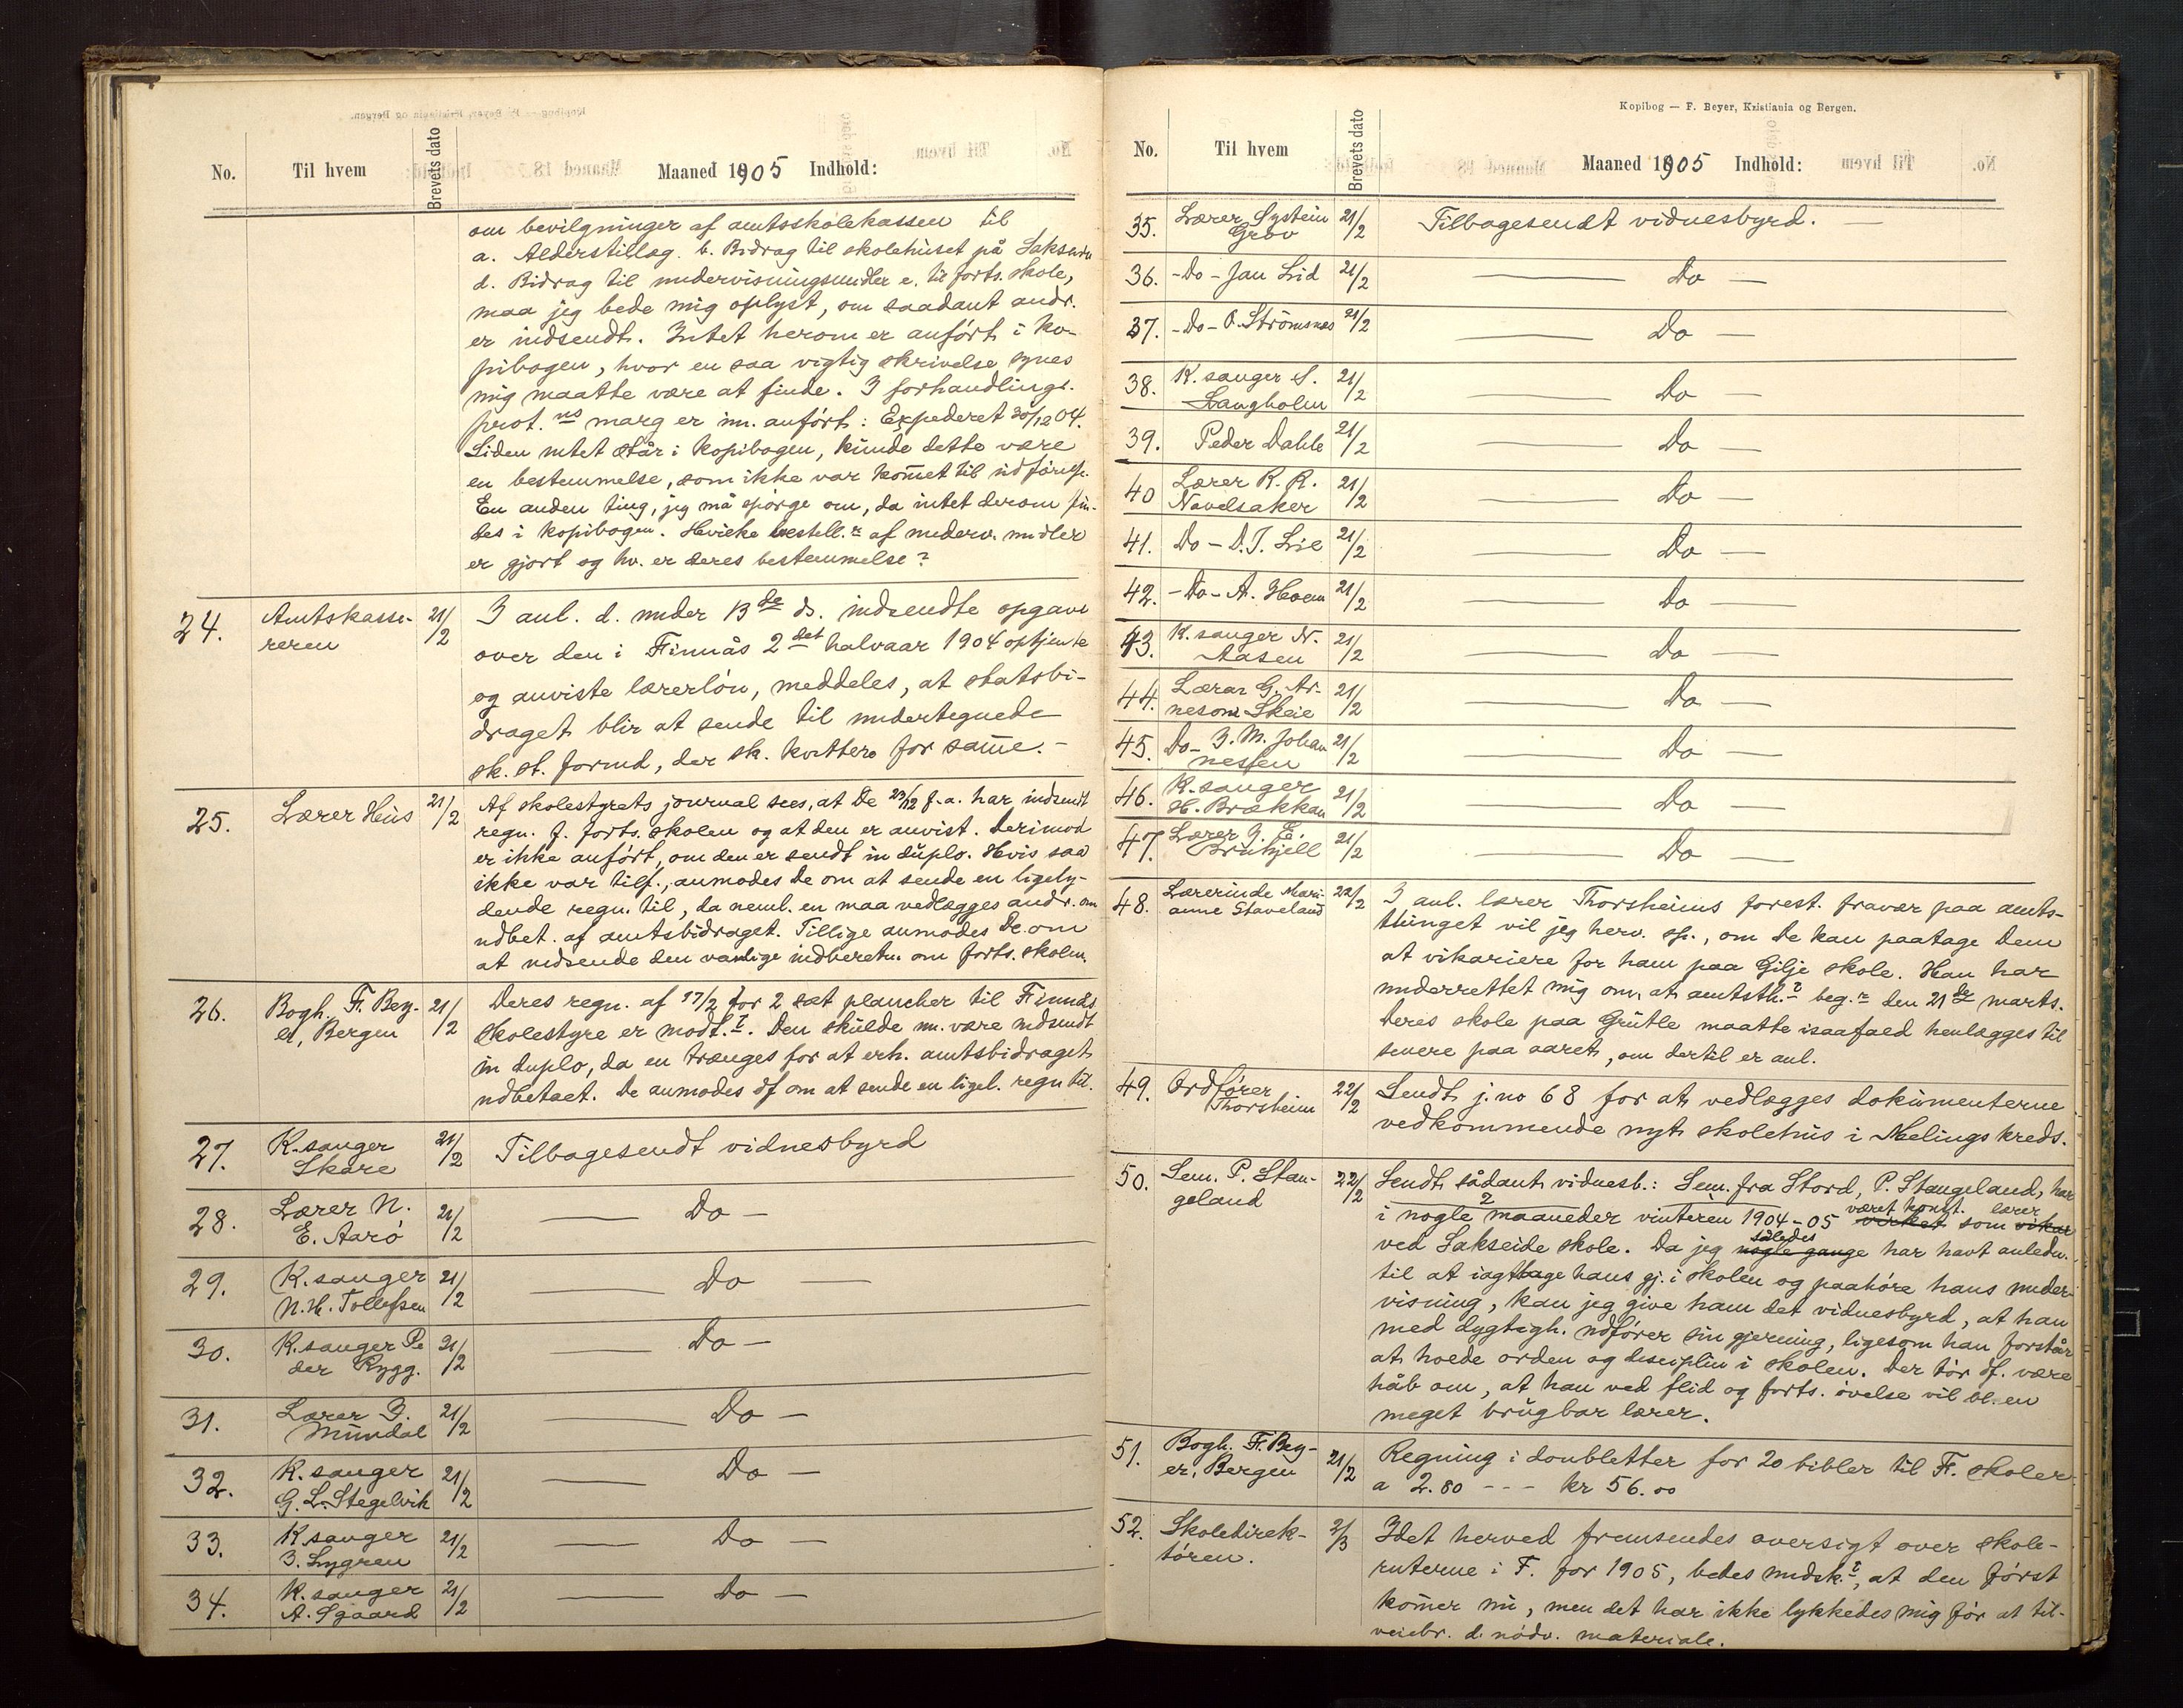 No. Til hvem Brevets dato Maaned 1905 Indhold:
om bevilgninger af amtsskolekassen til
a. Alderstillæg. b. Bidrag til skolehuset på Lakseide
d. Bidrag til undervisningsmidler e. til forts. skole,
maa jeg bede mig oplyst, om saadant andr.
er indsendt. Intet herom er anført i ko-
pibogen, hvor en saa vigtig skrivelse synes
mig maatte være at finde. I forhandlings-
prot.ns marg er nu. anført: Expederet 30/12 04.
Siden intet står i kopibogen, kunde dette være
en bestemmelse, som ikke var kom̅et til udførelse.
En anden ting, jeg må spørge om, da intet derom fin-
des i kopibogen. Hvilke bestill.r af underv. midler
er gjort og hv. er deres bestemmelse?
24. Amtskasse-
reren 21/2 I anl. d. under 13de ds. indsendte opgave
over den i Finnås 2det halvaar 1904 optjente
og anviste lærerløn, meddeles, at statsbi-
draget blir at sende til undertegnede
sk. st. formd, der sk. kvittere for sam̅e. -
25. Lærer Hus 21/2 Af skolestyrets journal sees, at De 23/12 f. a. har indsendt
regn. f. forts. skolen og at den er anvist. Derimod
er ikke anført, om den er sendt in duplo. Hvis saa
ikke var tilf., anmodes De om at sende en ligely-
dende regn. til, da neml. en maa vedlægges andr. om
udbet. af amtsbidraget. Tillige anmodes De om
at indsende den vanlige indberetn. om forts. skolen.
26. Bogh. F. Bey-
er, Bergen 21/2 Deres regn. af 17/2 for 2 sæt plancher til Finnås
skolestyre er modt.t. Den skulde nu. være indsendt
in duplo, da en trænges for at erh. amtsbidraget
udbetaet. De anmodes df om at sende en ligel. regn til.
27. K. sanger
Skare 21/2 Tilbagesendt vidnesbyrd
28. Lærer N.
E. Aarø 21/2 — Do —
29. K. sanger
N. H. Tollefsen 21/2 — Do —
30. K. sanger Pe
der Rygg. 21/2 — Do —
31. Lærer I.
Mundal 21/2 — Do —
32. K. sanger
G. L. Stegelvik 21/2 — Do —
33. K. sanger
I. Lygren 21/2 — Do —
34. K. sanger
A. Sgaard 21/2 — Do —
Kopibog — F. Beyer, Kristiania og Bergen.
No. Til hvem Brevets dato Maaned 1905 Indhold:
35. Lærer Systein
Grov 21/2 Tilbagesendt vidnesbyrd. —
36. - Do - Jan Lid 21/2 — Do —
37. - Do - O. Strömsnes 21/2 — Do —
38. K. sanger S.
Langholm 21/2 — Do —
39. Peder Dahle 21/2 — Do —
40 Lærer R. R.
Navelsaker 21/2 — Do —
41. Do - D. T. Lie 21/2 — Do —
42. - Do - A. Hoem 21/2 — Do —
43. K. sanger N.
Aasen 21/2 — Do —
44. Lærar G. Ar-
nesom Skeie 21/2 — Do —
45. Do - I. M. Johan
nessen 21/2 — Do —
46. K. sanger
H. Brækkan 21/2 — Do —
47. Lærer I. E.
Bruhjell 21/2 — Do —
48. Lærerinde Mari-
anne Staveland 22/2 I anl. lærer Thorsheims forest. fravær paa amts-
thinget vil jeg herv. sp., om De kan paatage Dem
at vikariere for ham paa Gilje skole. Han har
underrettet mig om, at amtsth.t beg.r den 21de marts.
Deres skole paa Grutle maatte isaafald henlægges til
senere paa aaret, om dertil er anl.
49. Ordfører
Thorsheim 22/2 Sendt j. no 68 for at vedlægges dokumenterne
vedkommende nyt skolehus i Mælings kreds.
50. Sem. P. Stan-
geland 22/2 Sendt sådant vidnesb.: Sem. fra Stord, P. Stangeland, har
2 været konst. lærer
i nogle maaneder vinteren 1904-05 virket som vikar
således
ved Lakseide skole. Da jeg nogle gange har havt anledn.
til at iagttage hans gj. i skolen og paahøre hans under-
visning, kan jeg give ham det vidnesbyrd, at han
med dygtigh. udfører sin gjerning, ligesom han forstår
at holde orden og disciplin i skolen. Der tör df. være
håb om, at han ved flid og forts. övelse vil bl. en
meget brugbar lærer.
51. Bogh. F. Bey-
er, Bergen 21/2 Regning i doubletter for 20 bibler til F. skoler
a 2.80 - - - kr 56.00
52. Skoledirek-
tören. 2/3 Idet herved fremsendes oversigt over skole-
ruterne i F. for 1905, bedes undsk.t, at den först
kom̅er nu, men det har ikke lykkedes mig för at til-
veiebr. d. nödv. materiale.